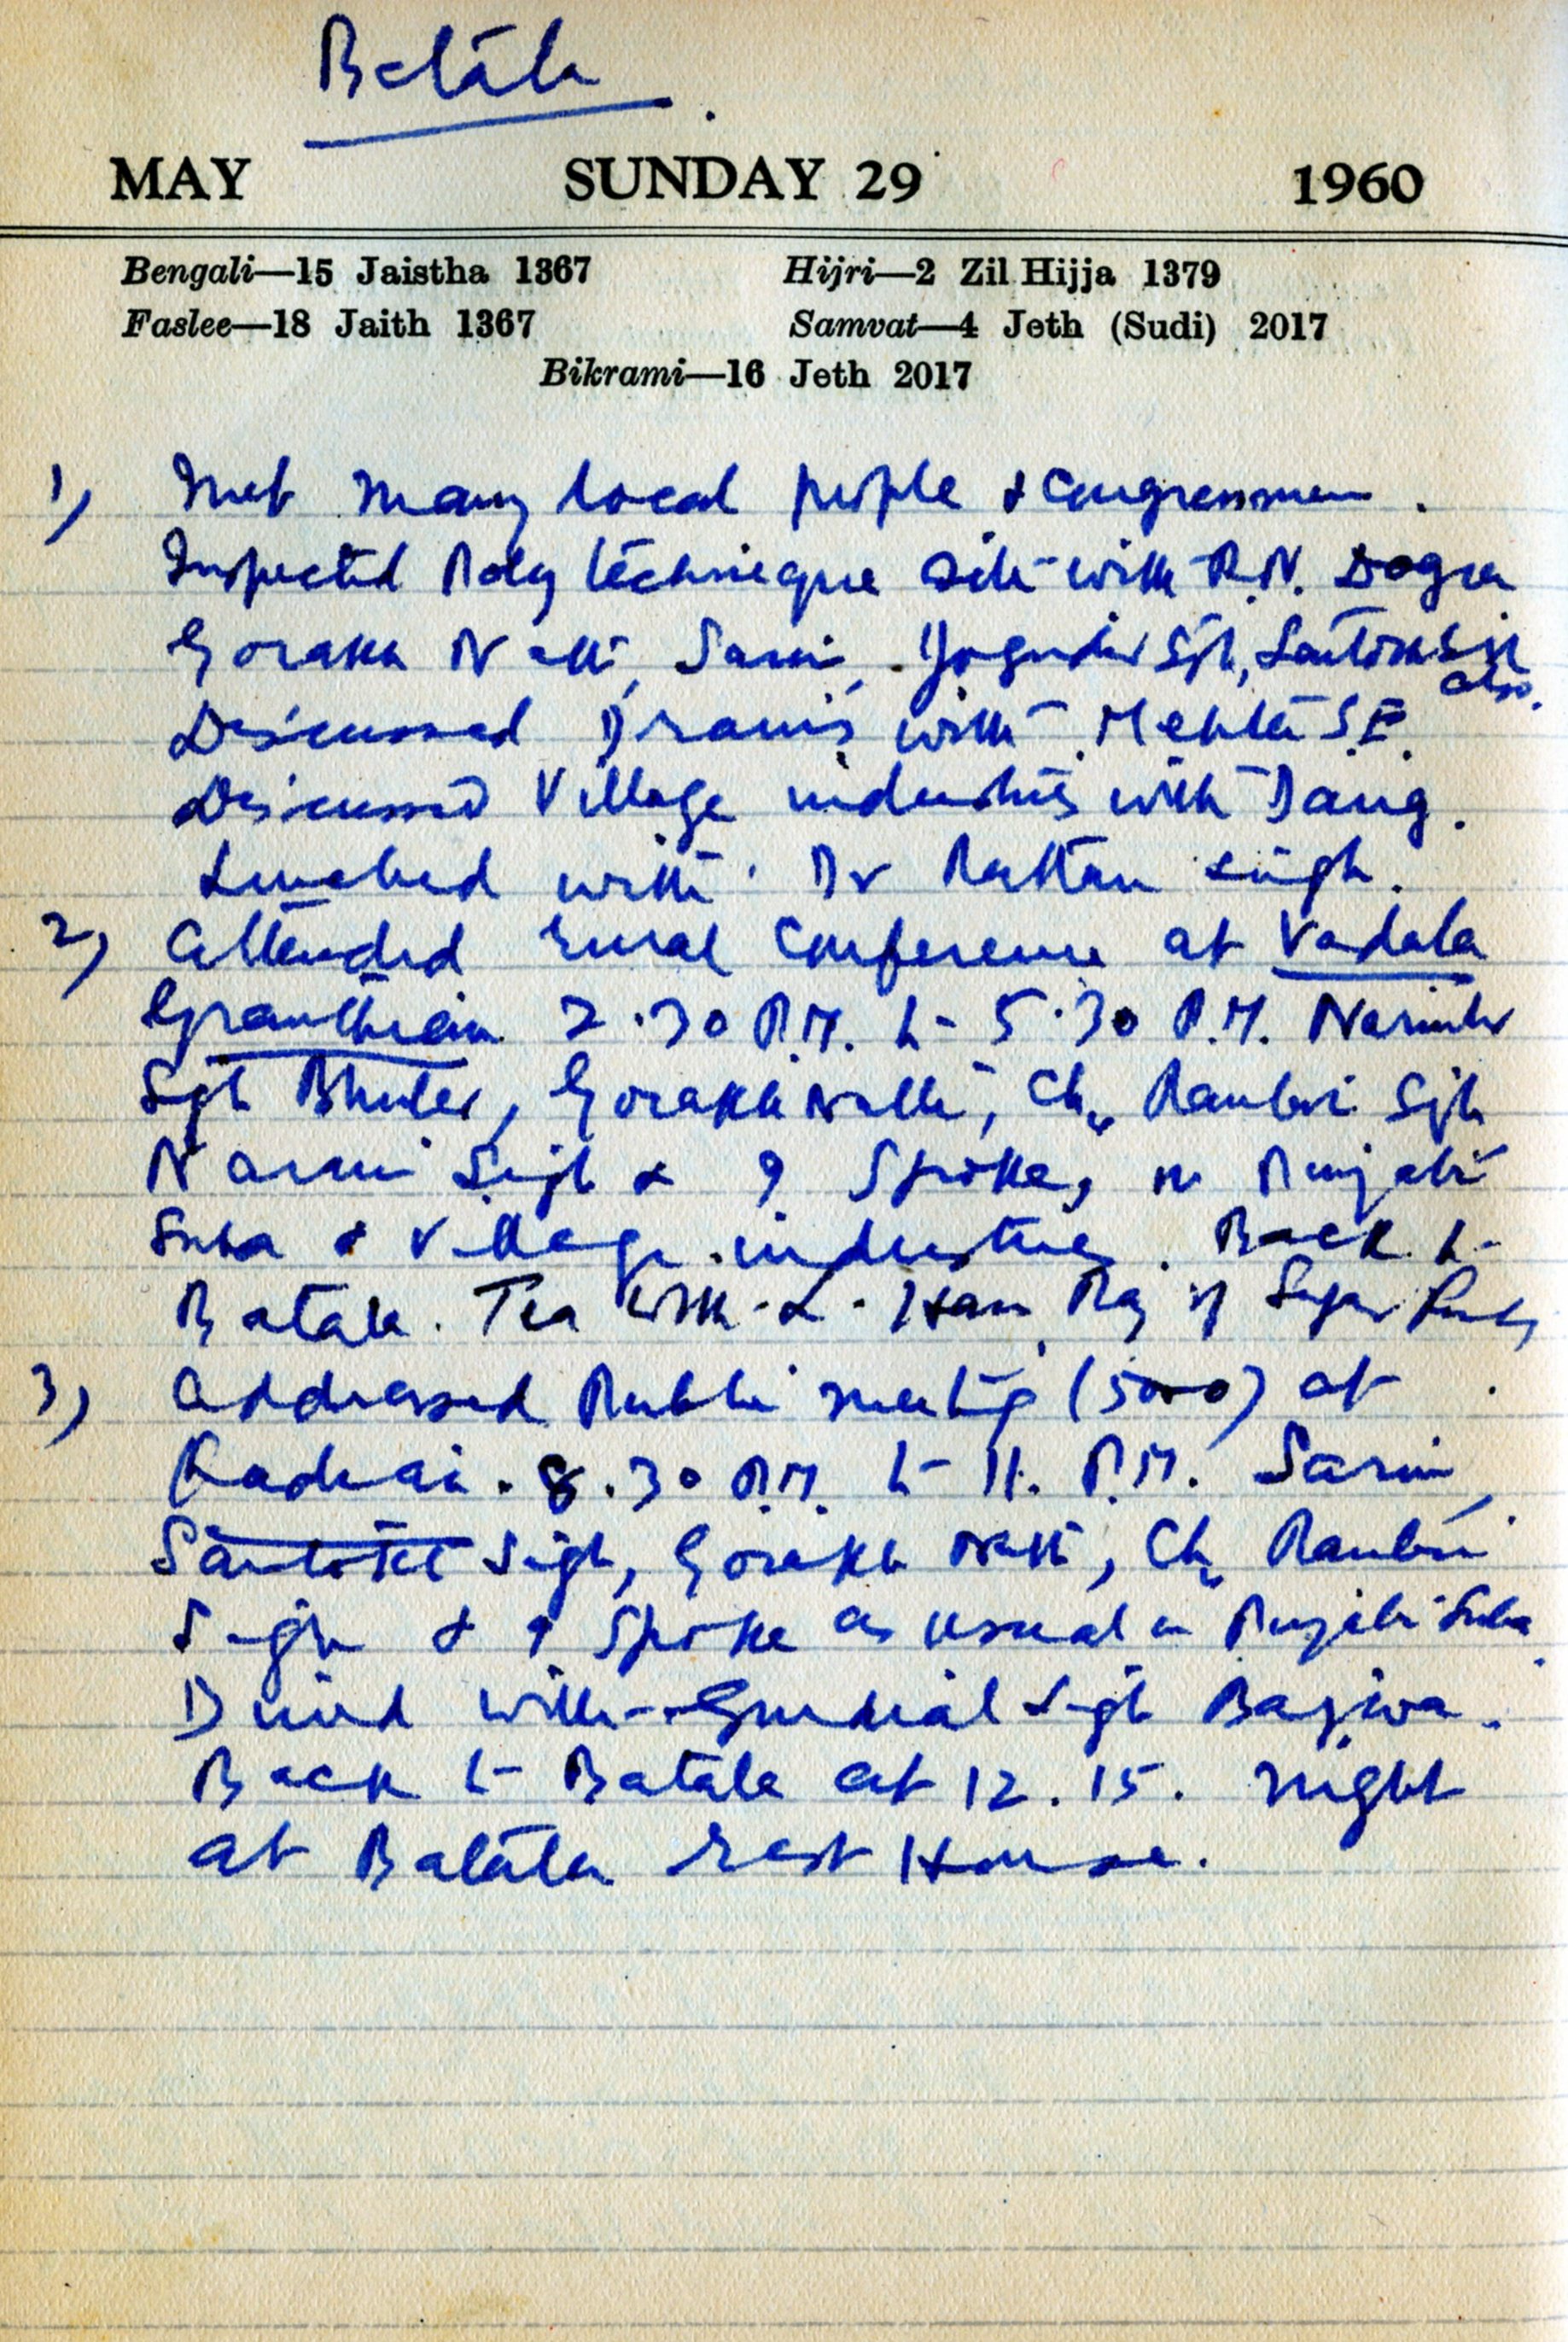 Batala
MAY SUNDAY 29 1960
Bengali—15 Jaistha 1367 Hijri—2 Zil Hijja 1379
Faslee—18 Jaith 1367 Samvat—4 Jeth (Sudi) 2017
Bikrami—16 Jeth 2017
1) Met many local people & Congressmen.
Inspected Polytechnieque site with R.N. Dogra
Gorakh Nath, Sarin, Joginder Sgh, Santokh Sgh
also.
Discussed Drains with Mehta S.E.
Discussed Village industries with Dang.
Lunched with Dr Rattan Singh.
2) Attended rural Conference at Vadala
Granthian 2.30 P.M. to 5.30 P.M. Narinder
Sgh Bhuler, Gorakh Nath, Ch. Ranbir Sgh
Singh & I Spoke, on Punjabi
Suba & Village industries. Back to
Batala. Tea with L. Hans Raj of Sugar
3) Addressed Public meeting (5000) at
Kadian. 8.30 P.M. to 11. P.M. Sarin,
Santokh Singh, Gorakh Nath, Ch. Ranbir
Singh & I Spoke as usual on Punjabi Suba.
Dined with Gurdial Singh Bajwa.
Back to Batala at 12.15. night
at Batala rest House.